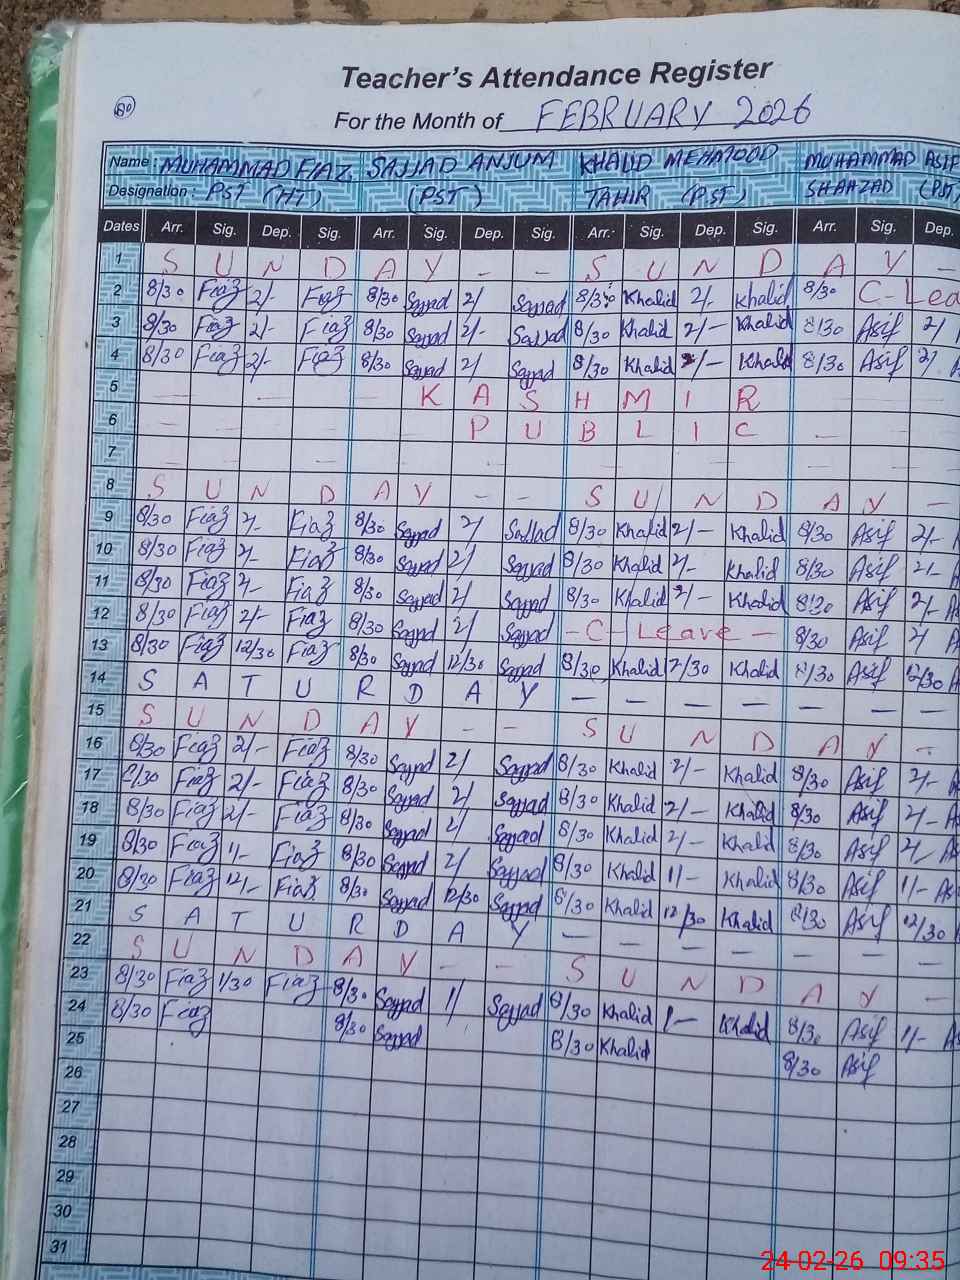 Teacher's Attendance Register
60
For the Month of FEBRUARY 2026
Name: MUHAMMAD FIAZ SAJJAD ANJUM KHALID MEHMOOD MUHAMMAD ASIF
Designation: PST (HT) (PST) TAHIR (P.S.T) SHAHZAD (PST)
Dates Arr. Sig. Dep. Sig. Arr. Sig. Dep. Sig. Arr. Sig. Dep. Sig. Arr. Sig. Dep.
1 S U N D A Y - - S U N D A Y -
2 8/30 Fiaz 2/- Fiaz 8/30 Sajjad 2/ Sajjad 8/30 Khalid 2/- Khalid 8/30 C-Lea
3 8/30 Fiaz 2/- Fiaz 8/30 Sajjad 2/- Sajjad 8/30 Khalid 2/- Khalid 8/30 Asif 2/
4 8/30 Fiaz 2/- Fiaz 8/30 Sajjad 2/ Sajjad 8/30 Khalid 2/- Khalid 8/30 Asif 2/
5 K A S H M I R
6 P U B L I C
7
8 S U N D A Y - - S U N D A Y -
9 8/30 Fiaz 2/- Fiaz 8/30 Sajjad 2/ Sajjad 8/30 Khalid 2/- Khalid 8/30 Asif 2/-
10 8/30 Fiaz 2/- Fiaz 8/30 Sajjad 2/ Sajjad 8/30 Khalid 2/- Khalid 8/30 Asif 2/-
11 8/30 Fiaz 2/- Fiaz 8/30 Sajjad 2/ Sajjad 8/30 Khalid 2/- Khalid 8/30 Asif 2/-
12 8/30 Fiaz 2/- Fiaz 8/30 Sajjad 2/ Sajjad - C - Leave - 8/30 Asif 2/
13 8/30 Fiaz 12/30 Fiaz 8/30 Sajjad 12/30 Sajjad 8/30 Khalid 12/30 Khalid 8/30 Asif 12/30
14 S A T U R D A Y - - - - - - -
15 S U N D A Y - - S U N D A Y -
16 8/30 Fiaz 2/- Fiaz 8/30 Sajjad 2/ Sajjad 8/30 Khalid 2/- Khalid 8/30 Asif 2/-
17 8/30 Fiaz 2/- Fiaz 8/30 Sajjad 2/ Sajjad 8/30 Khalid 2/- Khalid 8/30 Asif 2/-
18 8/30 Fiaz 2/- Fiaz 8/30 Sajjad 2/ Sajjad 8/30 Khalid 2/- Khalid 8/30 Asif 2/-
19 8/30 Fiaz 1/- Fiaz 8/30 Sajjad 2/ Sajjad 8/30 Khalid 1/- Khalid 8/30 Asif 1/-
20 8/30 Fiaz 12/- Fiaz 8/30 Sajjad 12/30 Sajjad 8/30 Khalid 12/30 Khalid 8/30 Asif 12/30
21 S A T U R D A Y - - - - - - -
22 S U N D A Y - - S U N D A Y -
23 8/30 Fiaz 1/30 Fiaz 8/30 Sajjad 1/ Sajjad 8/30 Khalid 1/- Khalid 8/30 Asif 1/-
24 8/30 Fiaz 8/30 Sajjad 8/30 Khalid 8/30 Asif
25
26
27
28
29
30
31
24-02-26 09:35